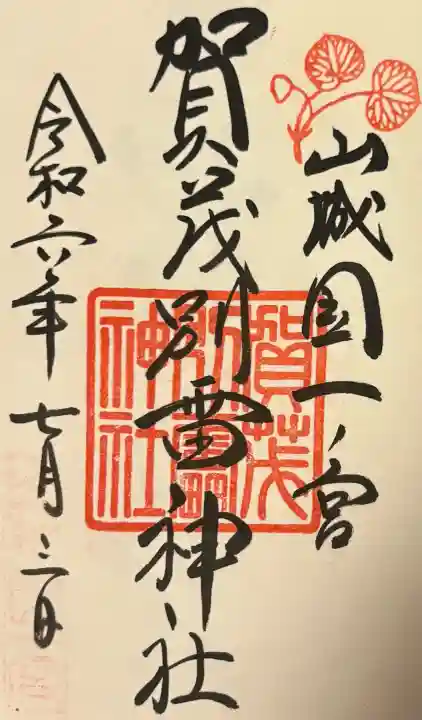 山城国一ノ宮
賀茂別雷神社
賀茂
別雷
神社
令和六年七月三日